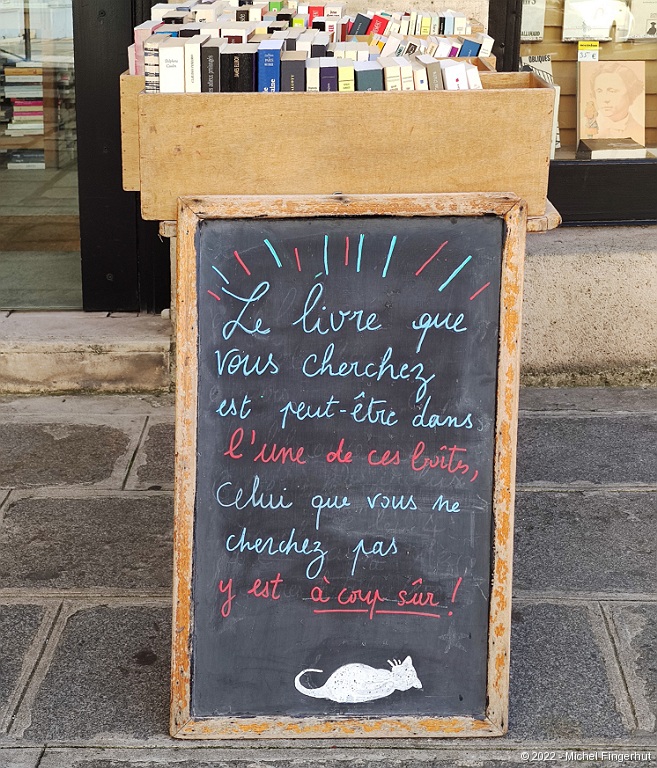 OBLIQUES
Le livre que
vous cherchez
est peut-être dans
l'une de ces boîtes,
Celui que vous ne
cherchez pas
y est à coup sûr !
© 2022 - Michel Fingerhut